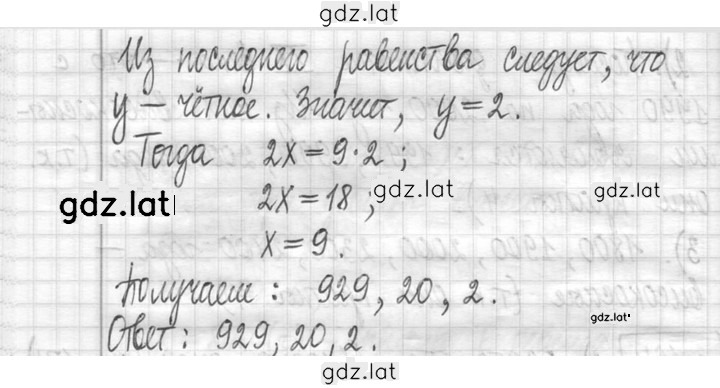 gdz.lat
Из последнего равенства следует, что
y – чётное. Значит, y = 2.
Тогда 2x = 9·2 ;
gdz.lat
2x = 18 ;
gdz.lat
gdz.lat
x = 9.
Получаем : 929, 20, 2.
gdz.lat
Ответ : 929, 20, 2.
gdz.lat